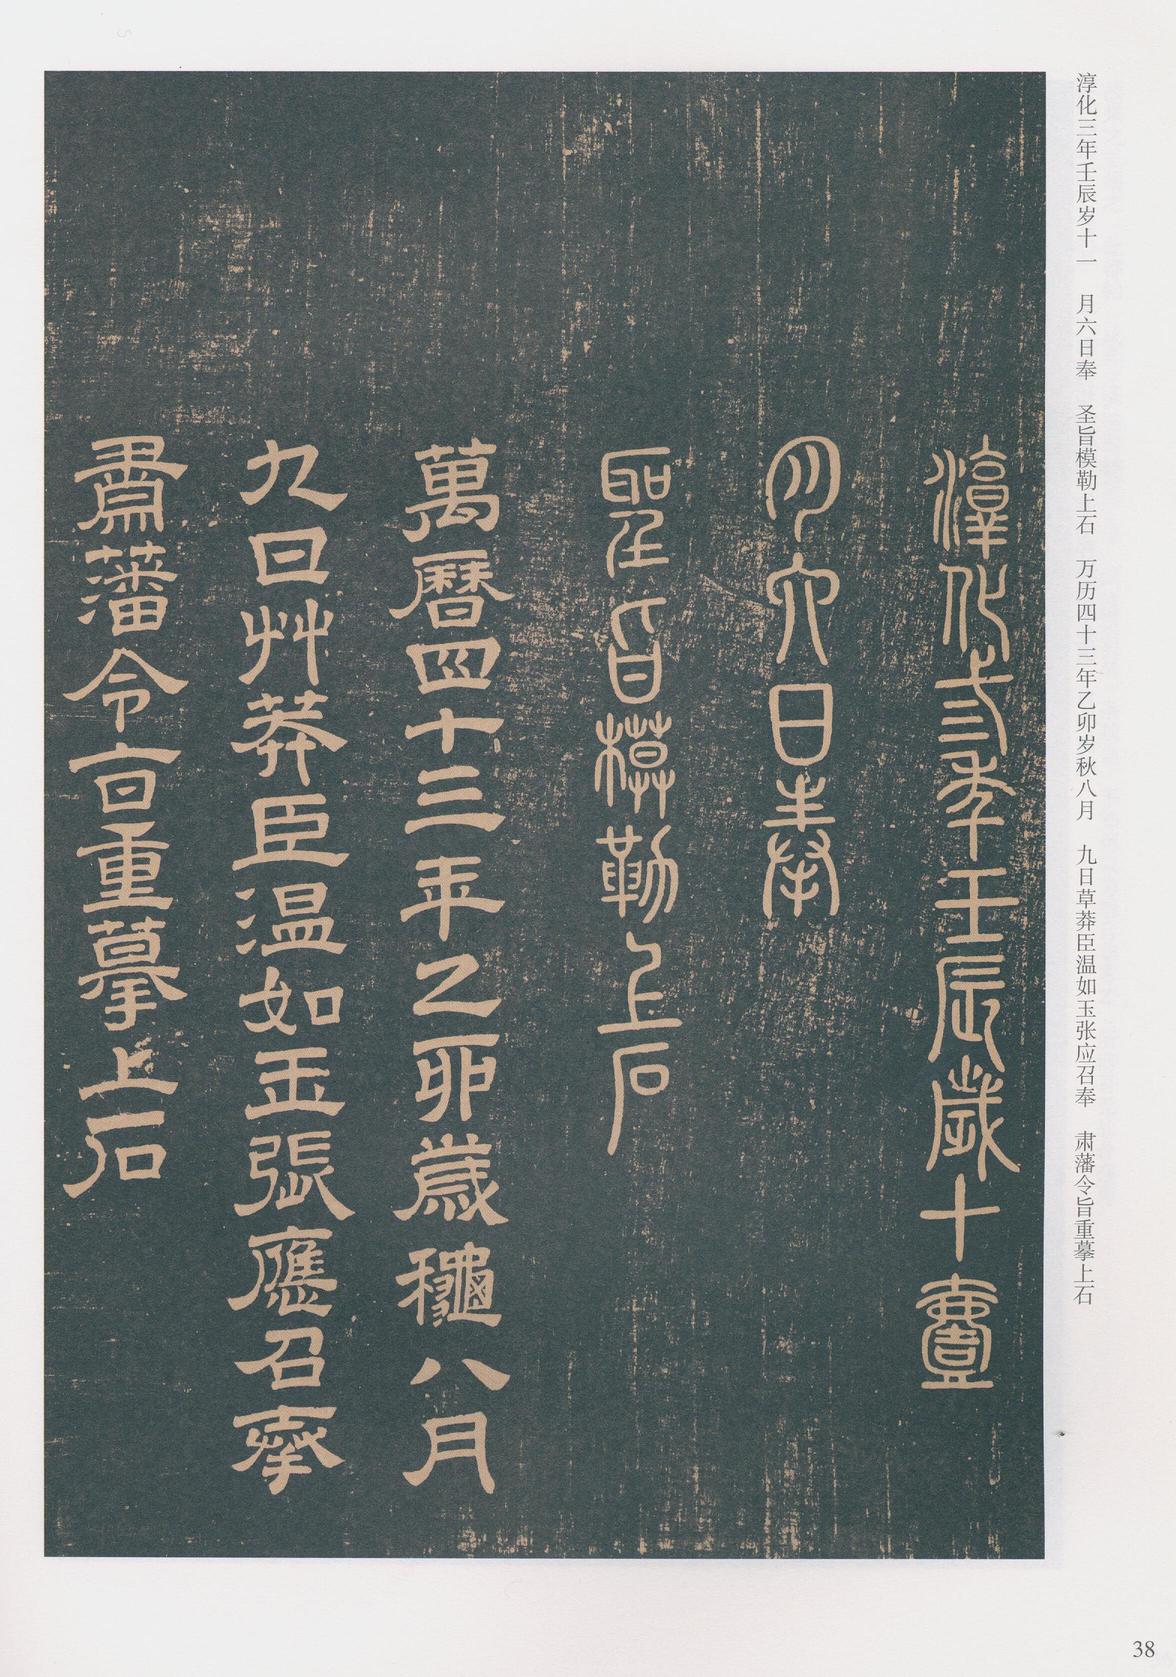 淳化三年壬辰岁十一　月六日奉　圣旨模勒上石　万历四十三年乙卯岁秋八月　九日草莽臣温如玉张应召奉　肃藩令旨重摹上石
淳化弎年壬辰歲十壹
月六日奉
聖旨模勒上石
萬曆四十三年乙卯歲龝八月
九日艸莽臣温如玉張應召奉
肅藩令旨重摹上石
38